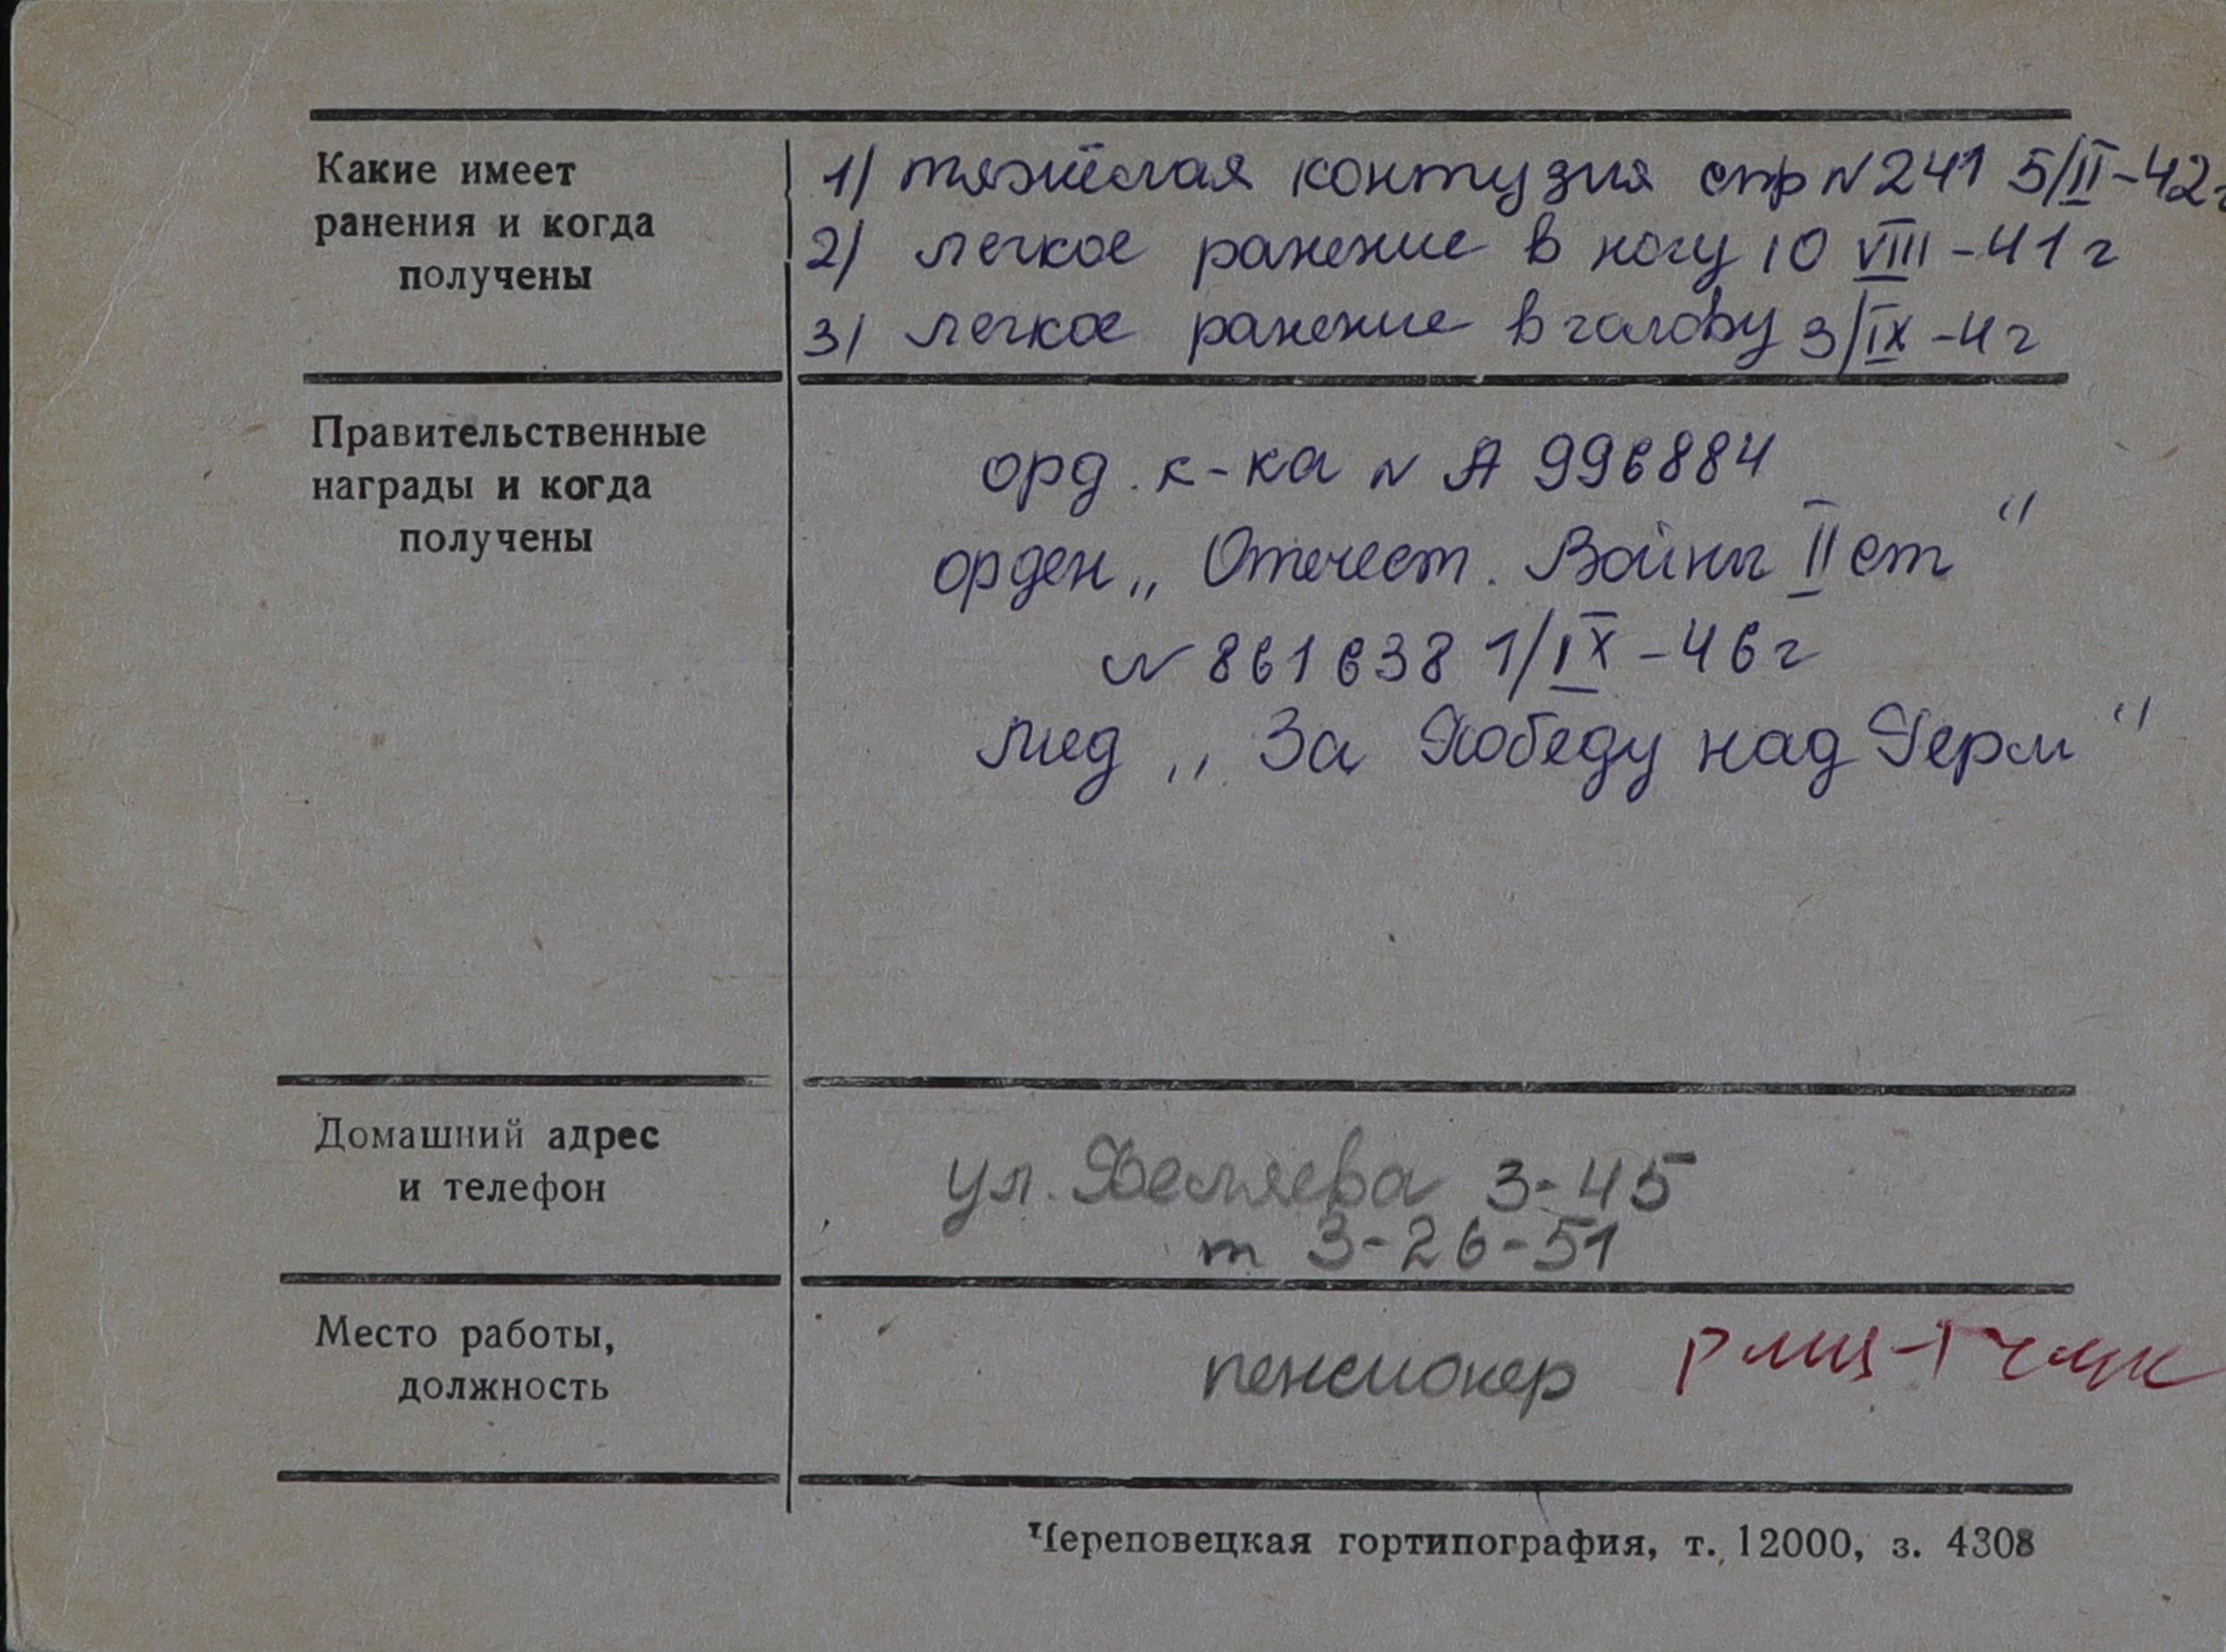 Какие имеет
ранения и когда
получены
1) тяжёлая контузия спр №241 5/II-42г
2) легкое ранение в ногу 10 VIII-41г
3) легкое ранение в голову 3/IX-4г
Правительственные
награды и когда
получены
орд. к-ка № А 996884
орден „Отечест. Войны II ст"
№ 861638 1/IX-46г
мед „За Победу над Герм"
Домашний адрес
и телефон
ул. Беляева 3-45
т 3-26-51
Место работы,
должность
пенсионер
Череповецкая гортипография, т. 12000, з. 4308